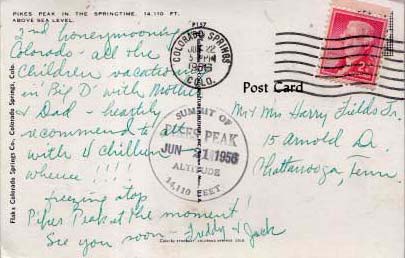 PIKES PEAK IN THE SPRINGTIME. 14,110 FT.
ABOVE SEA LEVEL.
2nd honeymooning
Colorado - all the
Children vacationing
in 'Big D' with Mother
& Dad - heartily
recommend to all
with 4 chillun -
whence !!!!
freezing atop
Pikes Peak at the moment!
See you soon - Freddy & Jack
Fisks Colorado Springs Co. Colorado Springs, Colo.
COLORADO SPRINGS
COLO.
JUN 22
PM
1956
SUMMIT OF
PIKES PEAK
JUN 21 1956
ALTITUDE
14,110 FEET
Post Card
Mr & Mrs Harry Fields Jr.
15 Arnold Dr.
Chattanooga, Tenn